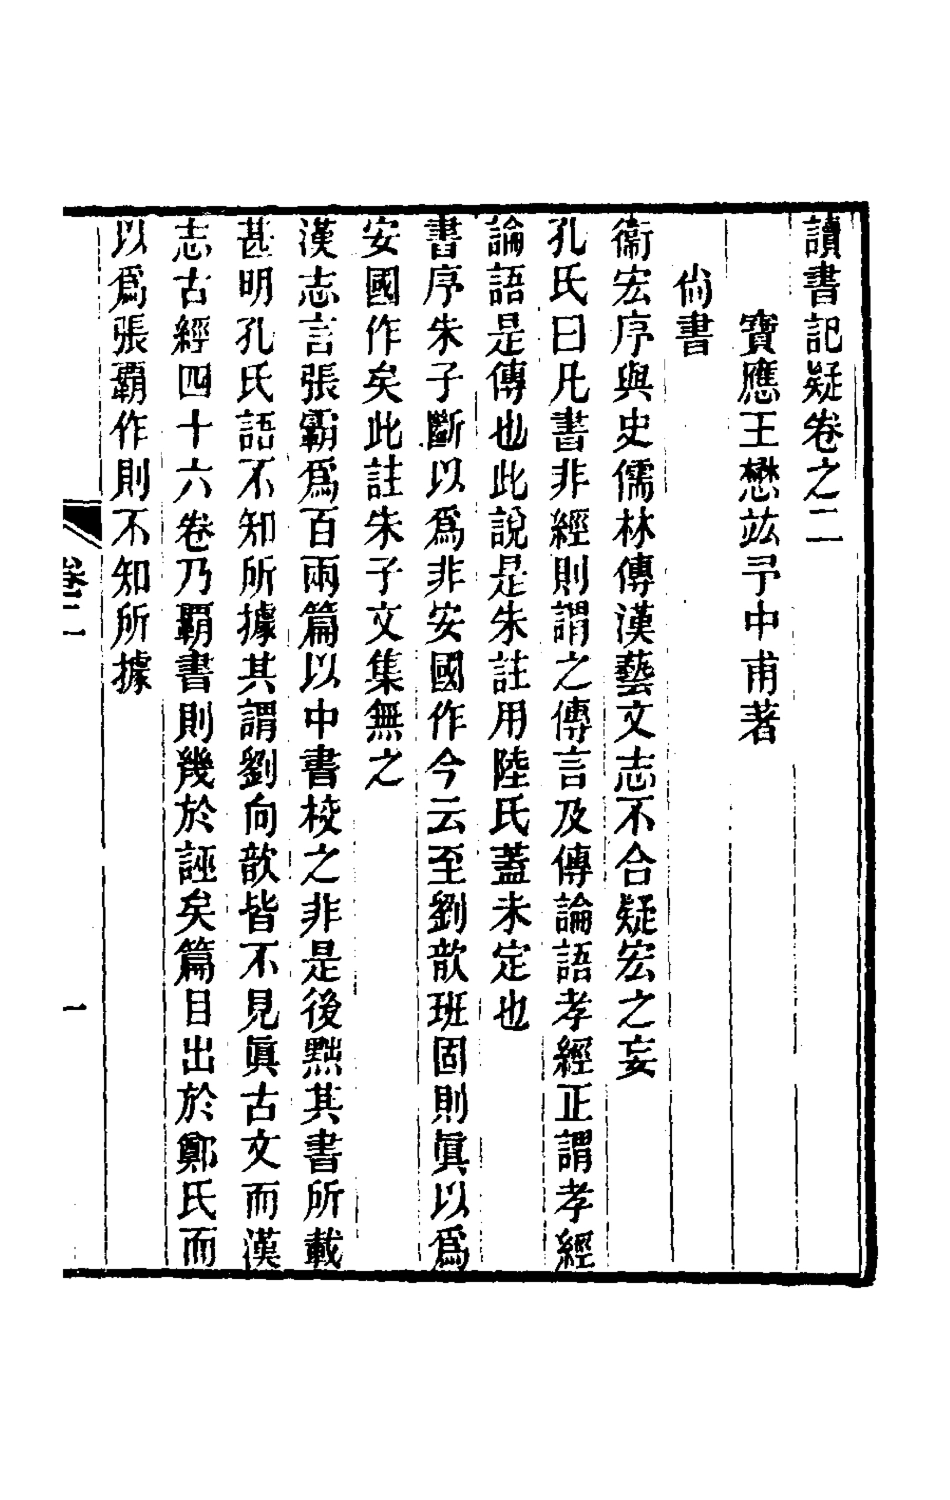 讀書記疑卷之二
寶應王懋竑予中甫著
尙書
衞宏序與史儒林傳漢藝文志不合疑宏之妄
孔氏曰凡書非經則謂之傳言及傳論語孝經正謂孝經
論語是傳也此說是朱註用陸氏蓋未定也
書序朱子斷以爲非安國作今云至劉歆班固則眞以爲
安國作矣此註朱子文集無之
漢志言張霸爲百兩篇以中書校之非是後黜其書所載
甚明孔氏語不知所據其謂劉向歆皆不見眞古文而漢
志古經四十六卷乃覇書則幾於誣矣篇目出於鄭氏而
以爲張覇作則不知所據
卷二
一